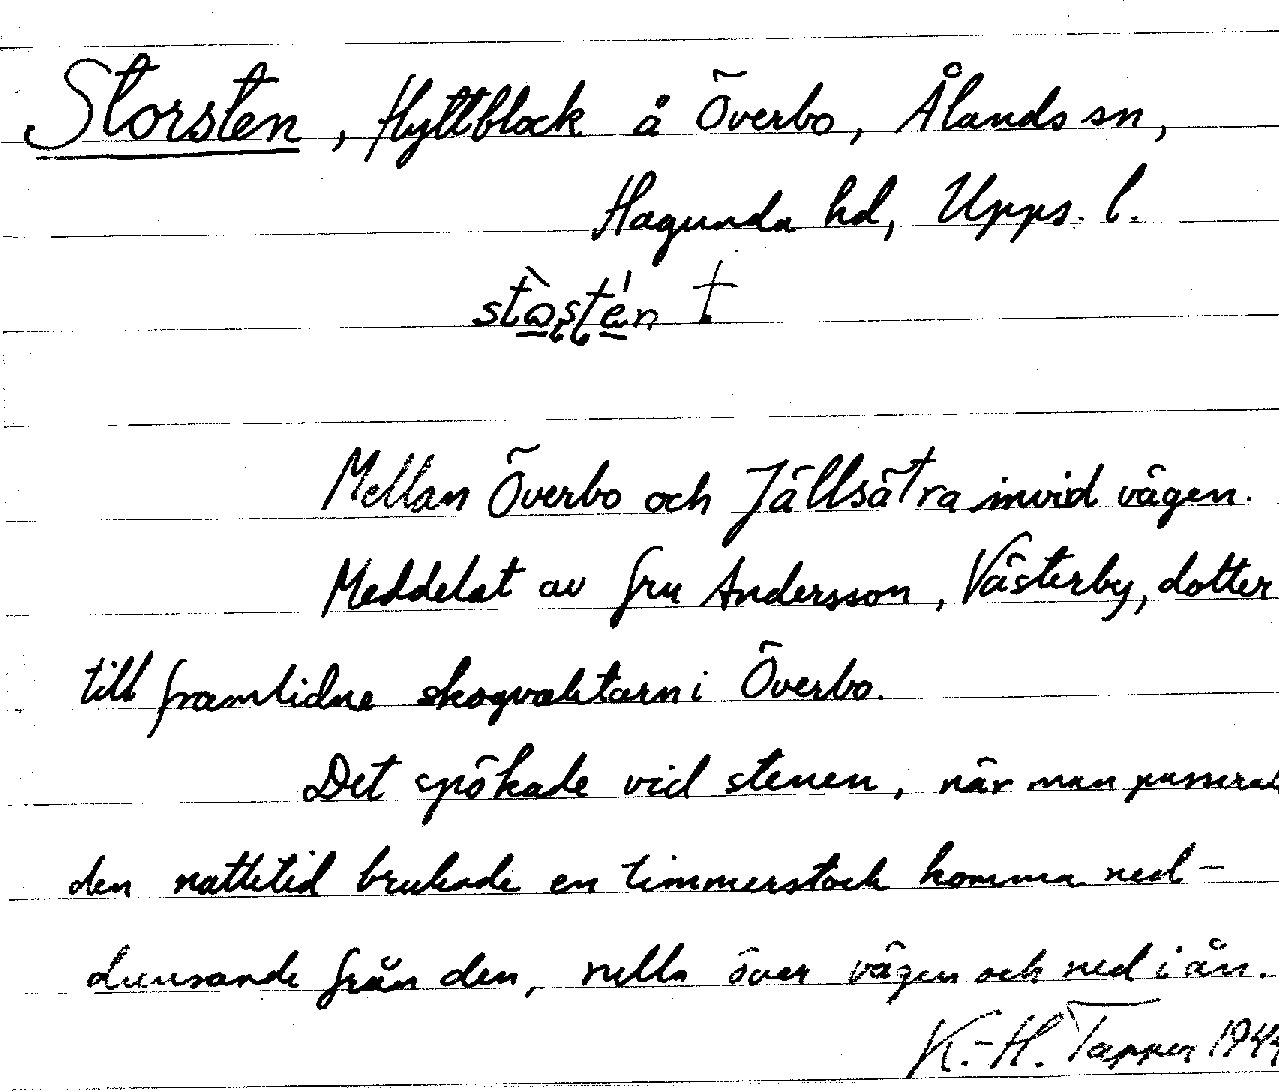 Storsten, Flyttblock å Överbo, Ålands sn,
Hagunda hd, Upps. l.
Mellan Överbo och Jällsätra invid vägen.
Meddelat av fru Andersson, Västerby, dotter
till framlidne skogvaktarn i Överbo.
Det spökade vid stenen, när man passerade
den nattetid brukade en timmerstock komma ned-
dunsande från den, rulla över vägen och ned i ån.
K.-H. Tapper 1944